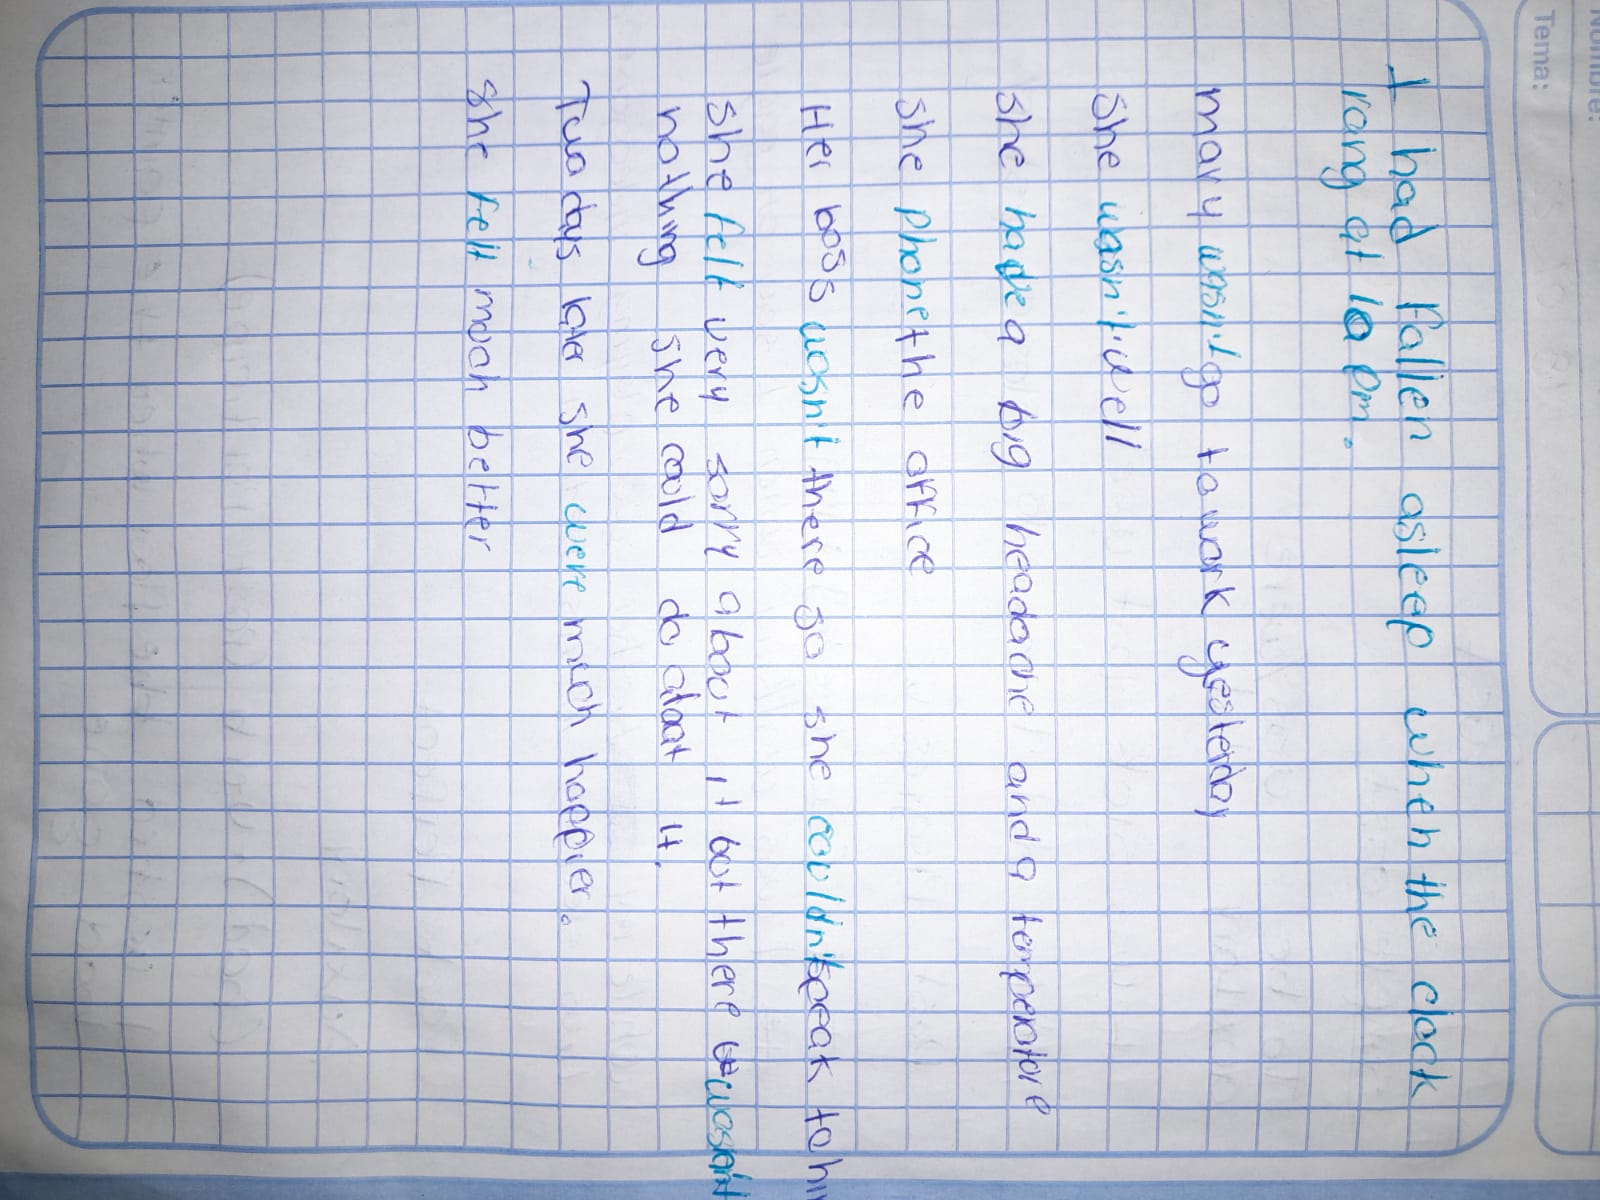 Nombre:
Tema:
I had fallen asleep when the clock
rang at 10 pm.
mary wasn't go to work yesterday
she wasn't well
she have a big headache and a temperature
she phone the office
Her boss wasn't there so she couldn't speak to him
she felt very sorry about it but there wasn't
nothing she could do about it.
Two days later she were much happier.
she felt much better